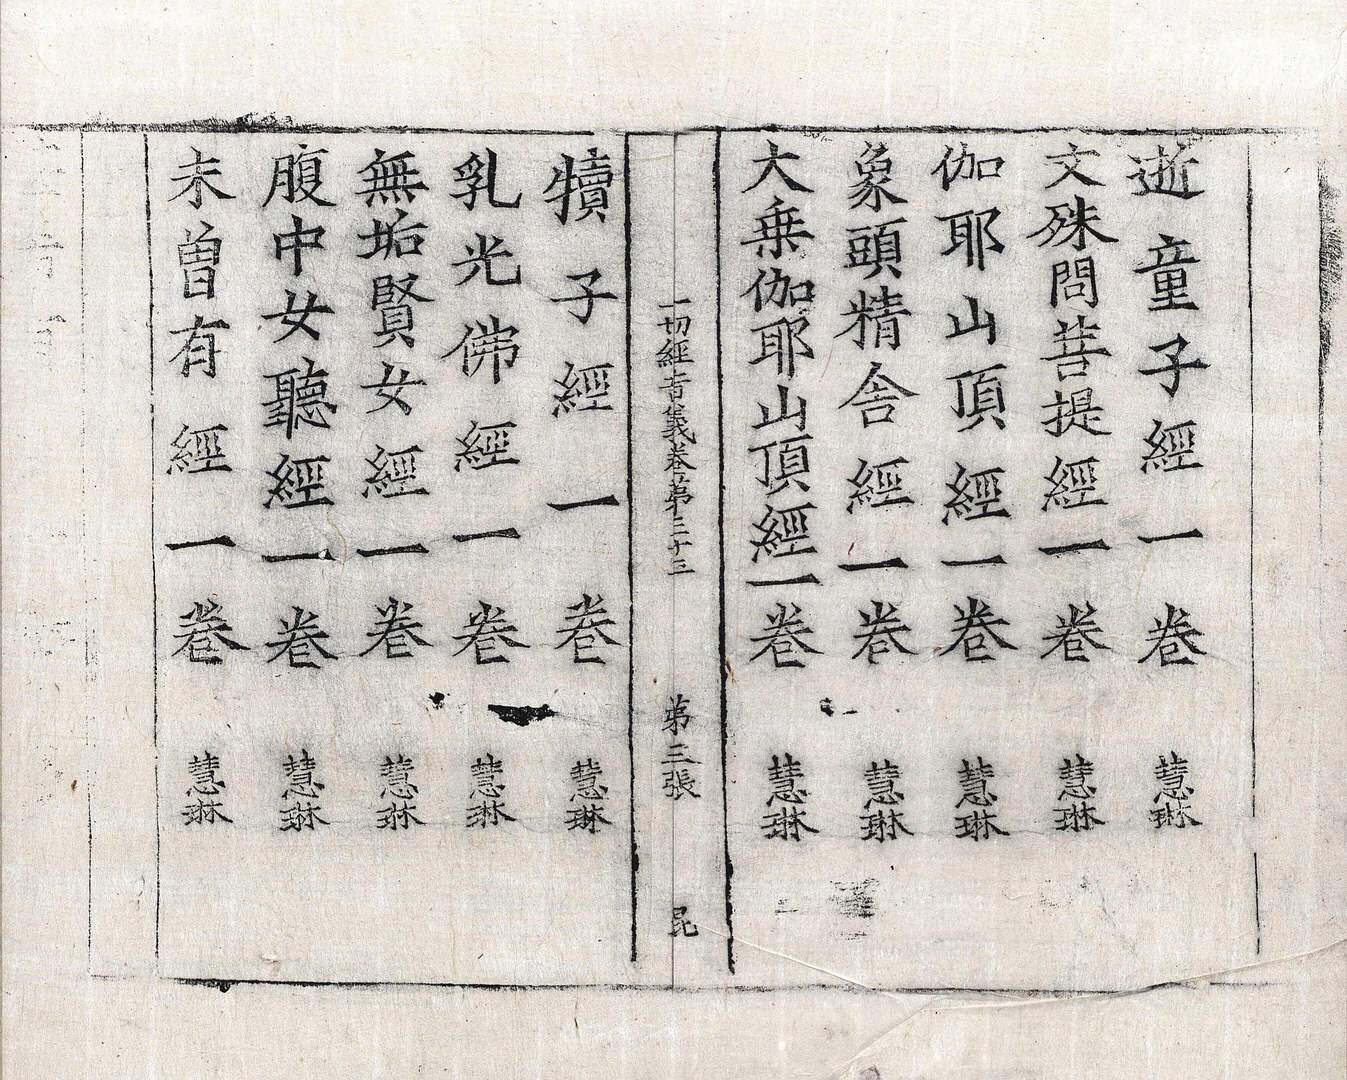 逝童子經一卷 慧琳
文殊問菩提經一卷 慧琳
伽耶山頂經一卷 慧琳
象頭精舍經一卷 慧琳
大乗伽耶山頂經一卷 慧琳
一切經音義卷苐三十三 苐三張 昆
犢子經一卷 慧琳
乳光佛經一卷 慧琳
無垢賢女經一卷 慧琳
腹中女聽經一卷 慧琳
未曽有經一卷 慧琳